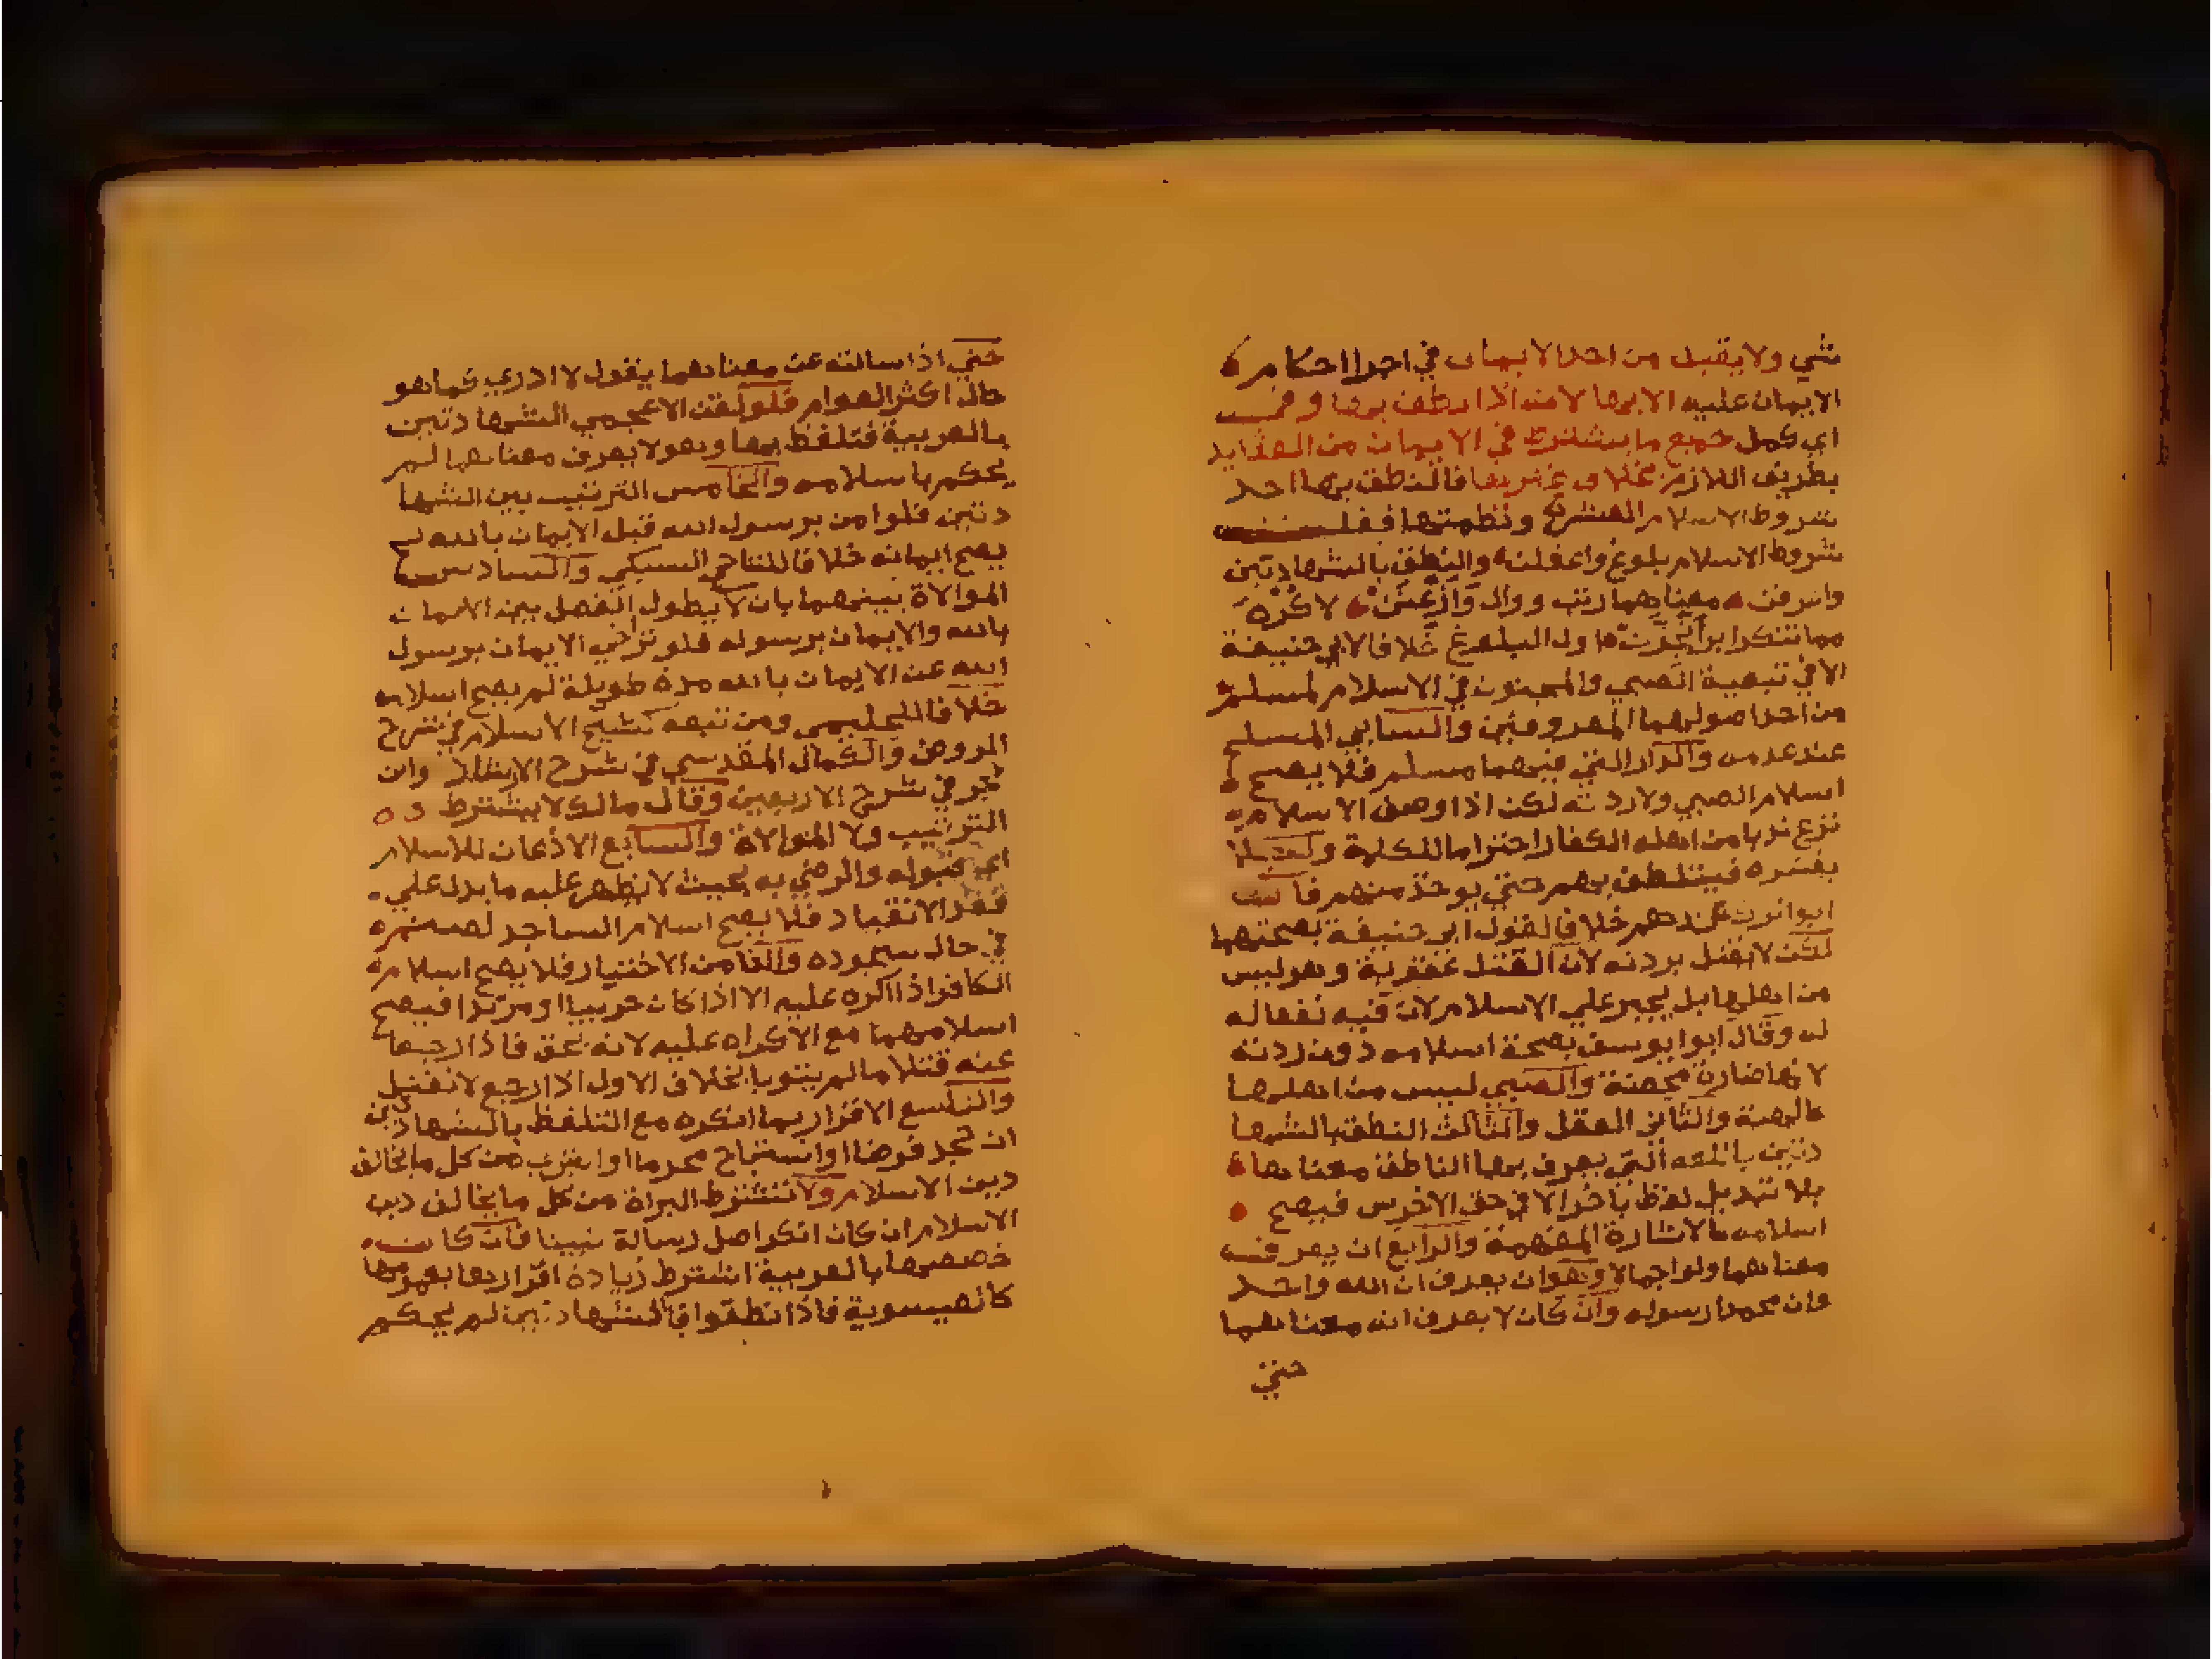 شي ولا يقبل من احد الايمان في اجرا احكام
الايمان عليه الا بها لانه اذا نطف بها وفـ
اي كمل جميع ما يشترط في الايمان من العقايد
بطريق اللازم بخلاف غيرها فالنطق بها احد
شروط الاسلام العشرة ونظمتها فقلـ
شروط الاسلام بلوغ واعقلنه والنطق بالشهادتين
واعرفن معناهما رتب ووال واذعنن لا كره
مما تنكرا بر اول البلوغ خلافا لابي حنيفة
الا في تبعية الصبي والمجنون في الاسلام لمسلم
من احد اصولهما المعروفين والسابي المسلم
عند عدمه والدار التي فيهما مسلم فلا يصح
اسلام الصبي ولا ردته لكن اذا وصف الاسلام
نزع ندبا من اهله الكفار احتراما للكلمة وليلا
يفسره فيتلطف بهم حتى يوخذ منهم فان
ابوا ترك عندهم خلافا لقول ابي حنيفة بصحتهما
لكن لا يقتل بردته لان القتل عقوبة وهو ليس
من اهلها بل يجبر علي الاسلام لان فيه نفعا له
له وقال ابو ايوسف بصحة اسلامه دون ردته
لانها ضارة محضنة والصبي ليس من اهلها
كالهبة والثاني العقل والثالث النطق بالشها
دتين باللغه التي يعرف بها الناطق معناها
بلا تبديل لفظ باخر الا في حق الاخرس فيصح
اسلامه بالاشارة المفهمة والرابع ان يعرفـ
معناهما ولو اجمالا وهو ان يعرف ان الله واحد
وان محمدا رسوله وان كان لا يعرف انه معناهما
حتي
حتي اذا سالته عن معناهما يقول لا ادري كما هو
حال اكثر العوام فلو لقن الاعجمي الشهادتين
بالعربية فتلفظ بها وهو لا يعرف معناهما لم
يحكم باسلامه والخامس الترتيب بين الشها
دتين فلو امن برسول الله قبل الايمان بالله لم
يصح ايمانه خلافا للتاج السبكي والسادس
الموالاة بينهما بان لا يطول الفصل بين الايمان
بالله والايمان برسوله فلو تراخي الايمان برسول
الله عن الايمان بالله مدة طويلة لم يصح اسلامه
خلافا للحليمي ومن تبعه كشيخ الاسلام في شرح
الروض والكمال المقدسي في شرح الارشاد وابن
حجر في شرح الاربعين وقال مالك لا يشترط
الترتيب ولا الموالاة والسابع الاذعان للاسلام
اي قبوله والرضي به بحيث لا يظهر عليه ما يدل علي
فقد الانقياد فلا يصح اسلام الساجد لصنمه
في حال سجوده والثامن الاختيار فلا يصح اسلام
الكافر اذا اكره عليه الا اذا كان حربيا او مرتدا فيصح
اسلامهما مع الاكراه عليه لانه بحق فاذا رجعا
عنه قتلا ما لم يتوبا بخلاف الاول اذا رجع لا يقتل
والتاسع الاقرار بما انكره مع التلفظ بالشهادتين
ان جحد فرضا او استباح محرما او يتبرا من كل ما يخالف
دين الاسلام ولا تشترط البراة من كل ما يخالف دين
الاسلام ان كان انكر اصل رسالة نبينا فان كان
خصصها بالعربية اشترط زيادة اقراره بعمومها
كالعيسوية فاذا نطقوا بالشهادتين لم يحكم